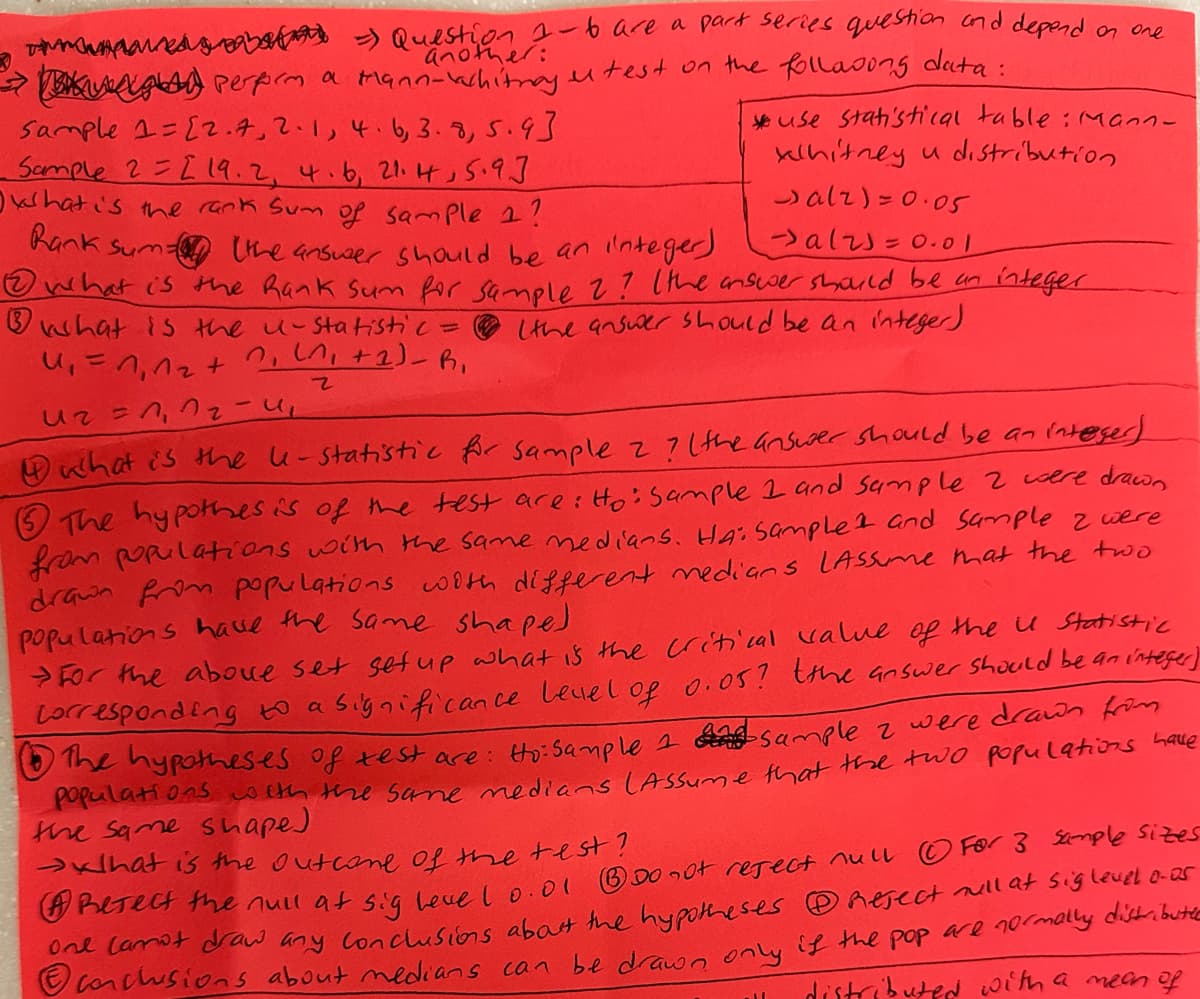 ⇒ Question 1-6 are a part series question and depend on one
another:
⇒ perform a Mann-Whitney u test on the following data:
Sample 1 = [2.7, 2.1, 4.6, 3.8, 5.9]
Sample 2 = [19.2, 4.6, 21.4, 5.9]
* use statistical table: Mann-
Whitney u distribution
→ a(2) = 0.05
→ a(2) = 0.01
) What is the rank sum of sample 1?
Rank sum= (the answer should be an integer)
② what is the Rank sum for sample 2? (the answer should be an integer
③ what is the u-statistic = (the answer should be an integer)
u₁ = n₁n₂ + n₁(n₁+1)/2 - R₁
u2 = n₁n₂ - u₁
④ what is the u-statistic for sample 2? (the answer should be an integer)
⑤ The hypothesis of the test are: H₀: sample 1 and sample 2 were drawn
from populations with the same medians. Ha: sample 1 and sample 2 were
drawn from populations with different medians (Assume that the two
populations have the same shape)
→ For the above set set up what is the critical value of the u statistic
corresponding to a significance level of 0.05? (the answer should be an integer)
⑥ The hypotheses of test are: H₀: Sample 1 sample 2 were drawn from
populations with the same medians (Assume that the two populations have
the same shape)
→ What is the outcome of the test?
Ⓐ Reject the null at sig level 0.01 Ⓑ Do not reject null Ⓒ For 3 sample sizes
one cannot draw any conclusions about the hypotheses Ⓓ Reject null at sig level 0.05
Ⓔ conclusions about medians can be drawn only if the pop are normally distributed
distributed with a mean of